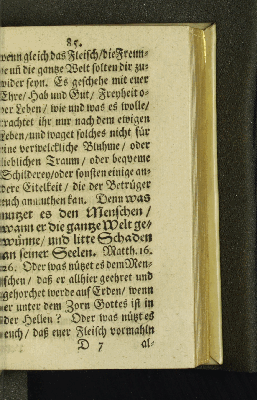 85.
wenn gleich das Fleisch / die Freun-
de uñ die gantze Welt solten dir zu-
wider seyn. Es geschehe mit euer
Ehre / Hab und Gut / Freyheit o-
der Leben / wie und was es wolle /
trachtet ihr nur nach dem ewigen
Leben / und waget solches nicht für
eine verwelckliche Bluhme / oder
lieblichen Traum / oder beqveme
Schilderey / oder sonsten einige an-
dere Eitelkeit / die der Betrüger
euch anmuthen kan. Denn was
nutzet es den Menschen /
wann er die gantze Welt ge-
wünne / und litte Schaden
an seiner Seelen. Matth. 16.
26. Oder was nützet es dem Men-
schen / daß er allhier geehret und
gehorchet werde auf Erden / wenn
er unter dem Zorn Gottes ist in
der Hellen? Oder was nützt es
euch / daß euer Fleisch vormahln
D 7 al-